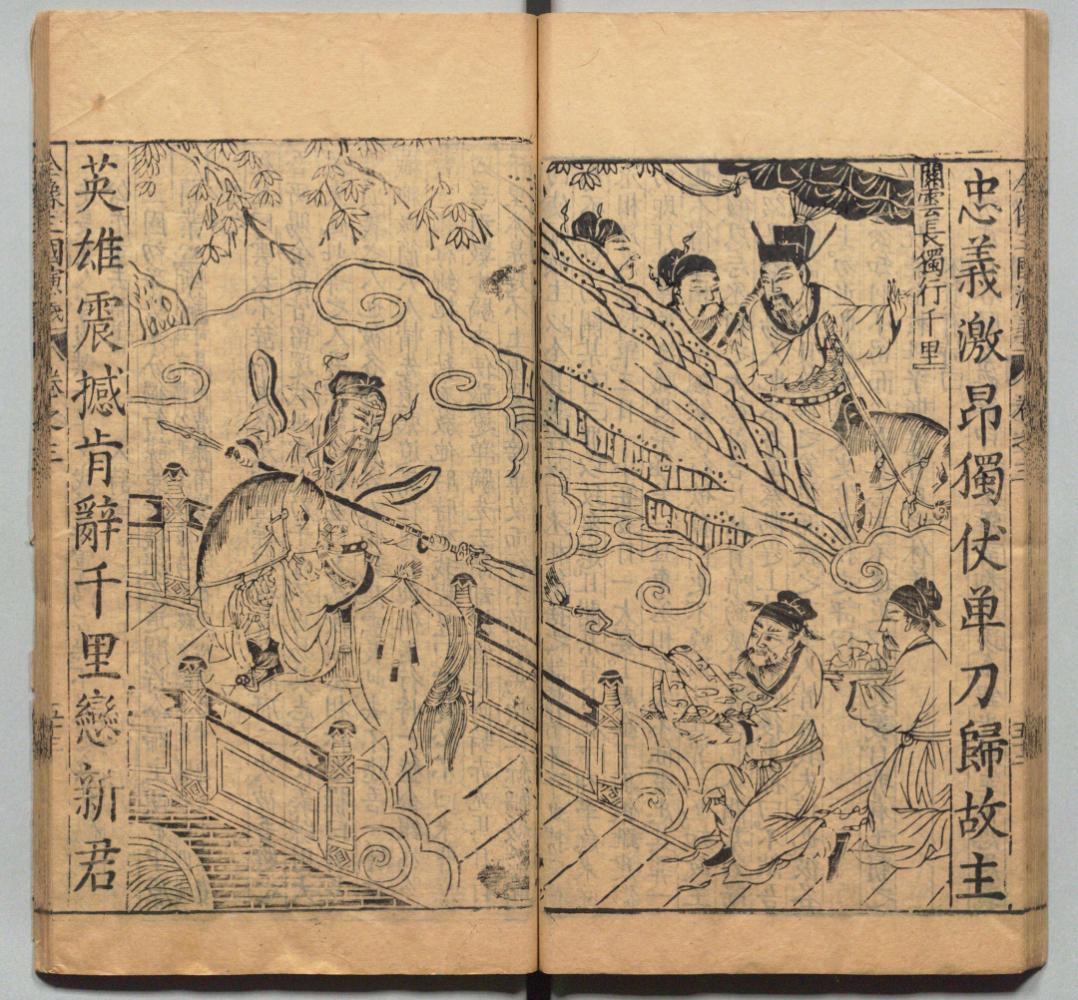 忠義激昂獨仗单刀歸故主
關雲長獨行千里
英雄震撼肯辭千里戀新君